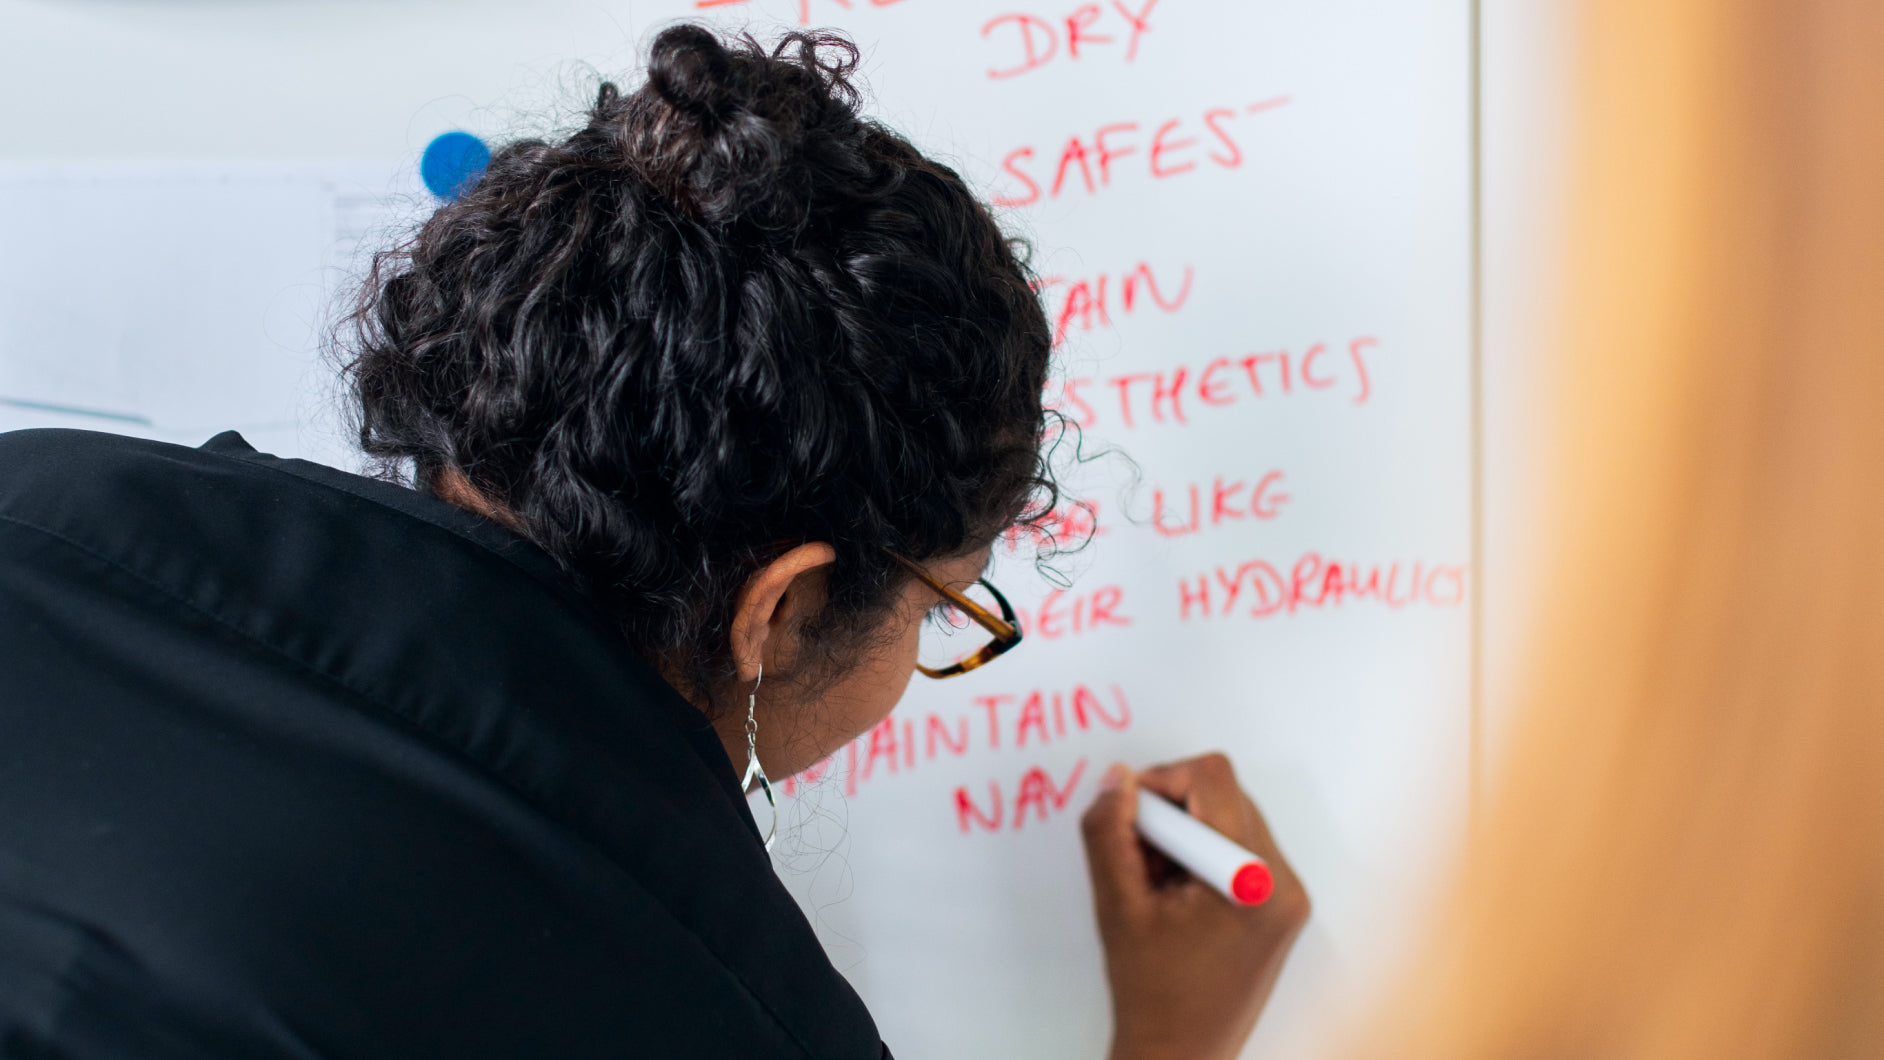 DRY
SAFES
TAIN
ESTHETICS
LIKE
HYDRAULICS
MAINTAIN
NAV